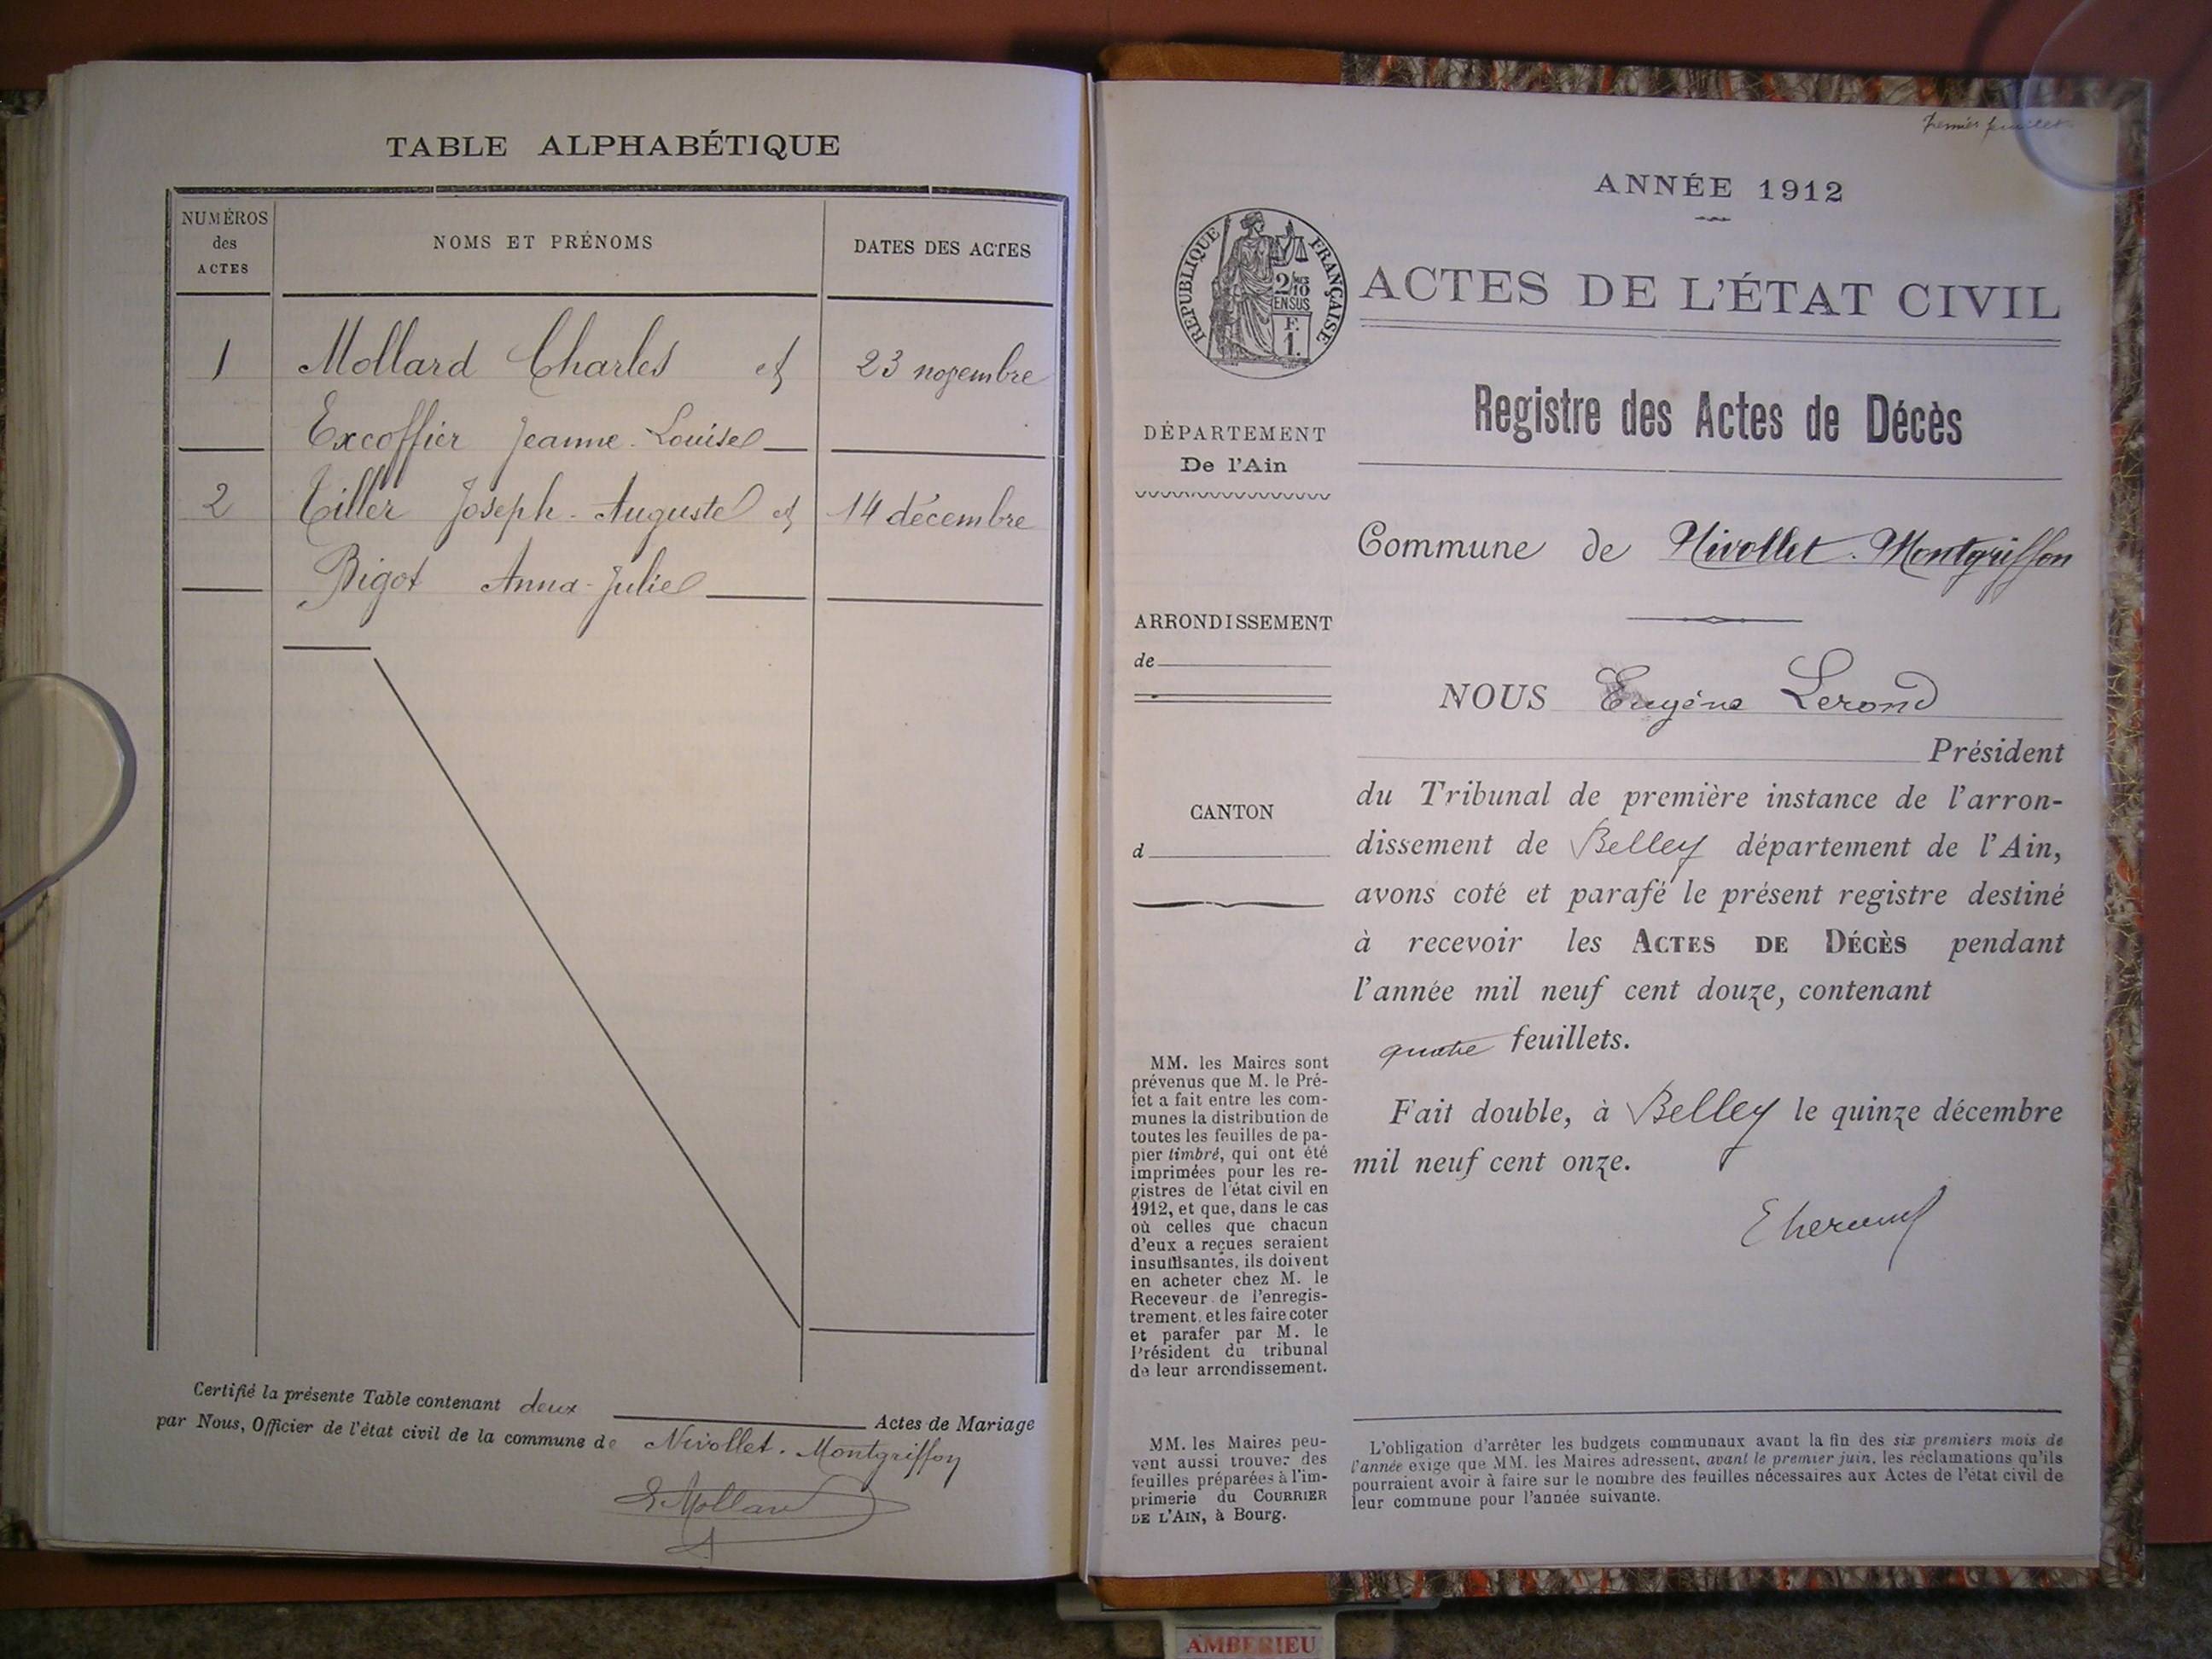 TABLE ALPHABÉTIQUE
NUMÉROS
des
ACTES
NOMS ET PRÉNOMS
DATES DES ACTES
1 Mollard Charles et 23 novembre
Excoffier Jeanne-Louise
2 Tiller Joseph-Auguste et 14 décembre
Bigot Anna-Julie
Certifié la présente Table contenant deux Actes de Mariage
par Nous, Officier de l'état civil de la commune de Nivollet-Montgriffon
Mollard
Premier feuillet
ANNÉE 1912
REPUBLIQUE FRANÇAISE
2/10
EN SUS
F.
1.
ACTES DE L'ÉTAT CIVIL
Registre des Actes de Décès
DÉPARTEMENT
De l'Ain
Commune de Nivollet-Montgriffon
ARRONDISSEMENT
de
NOUS Eugène Lerond
Président
CANTON
d
du Tribunal de première instance de l'arron-
dissement de Belley département de l'Ain,
avons coté et parafé le présent registre destiné
à recevoir les ACTES DE DÉCÈS pendant
l'année mil neuf cent douze, contenant
quatre feuillets.
Fait double, à Belley le quinze décembre
mil neuf cent onze.
MM. les Maires sont
prévenus que M. le Pré-
fet a fait entre les com-
munes la distribution de
toutes les feuilles de pa-
pier timbré, qui ont été
imprimées pour les re-
gistres de l'état civil en
1912, et que, dans le cas
où celles que chacun
d'eux a reçues seraient
insuffisantes, ils doivent
en acheter chez M. le
Receveur de l'enregis-
trement, et les faire coter
et parafer par M. le
Président du tribunal
de leur arrondissement.
MM. les Maires peu-
vent aussi trouver des
feuilles préparées à l'im-
primerie du COURRIER
DE L'AIN, à Bourg.
L'obligation d'arrêter les budgets communaux avant la fin des six premiers mois de
l'année exige que MM. les Maires adressent, avant le premier juin, les réclamations qu'ils
pourraient avoir à faire sur le nombre des feuilles nécessaires aux Actes de l'état civil de
leur commune pour l'année suivante.
AMBERIEU